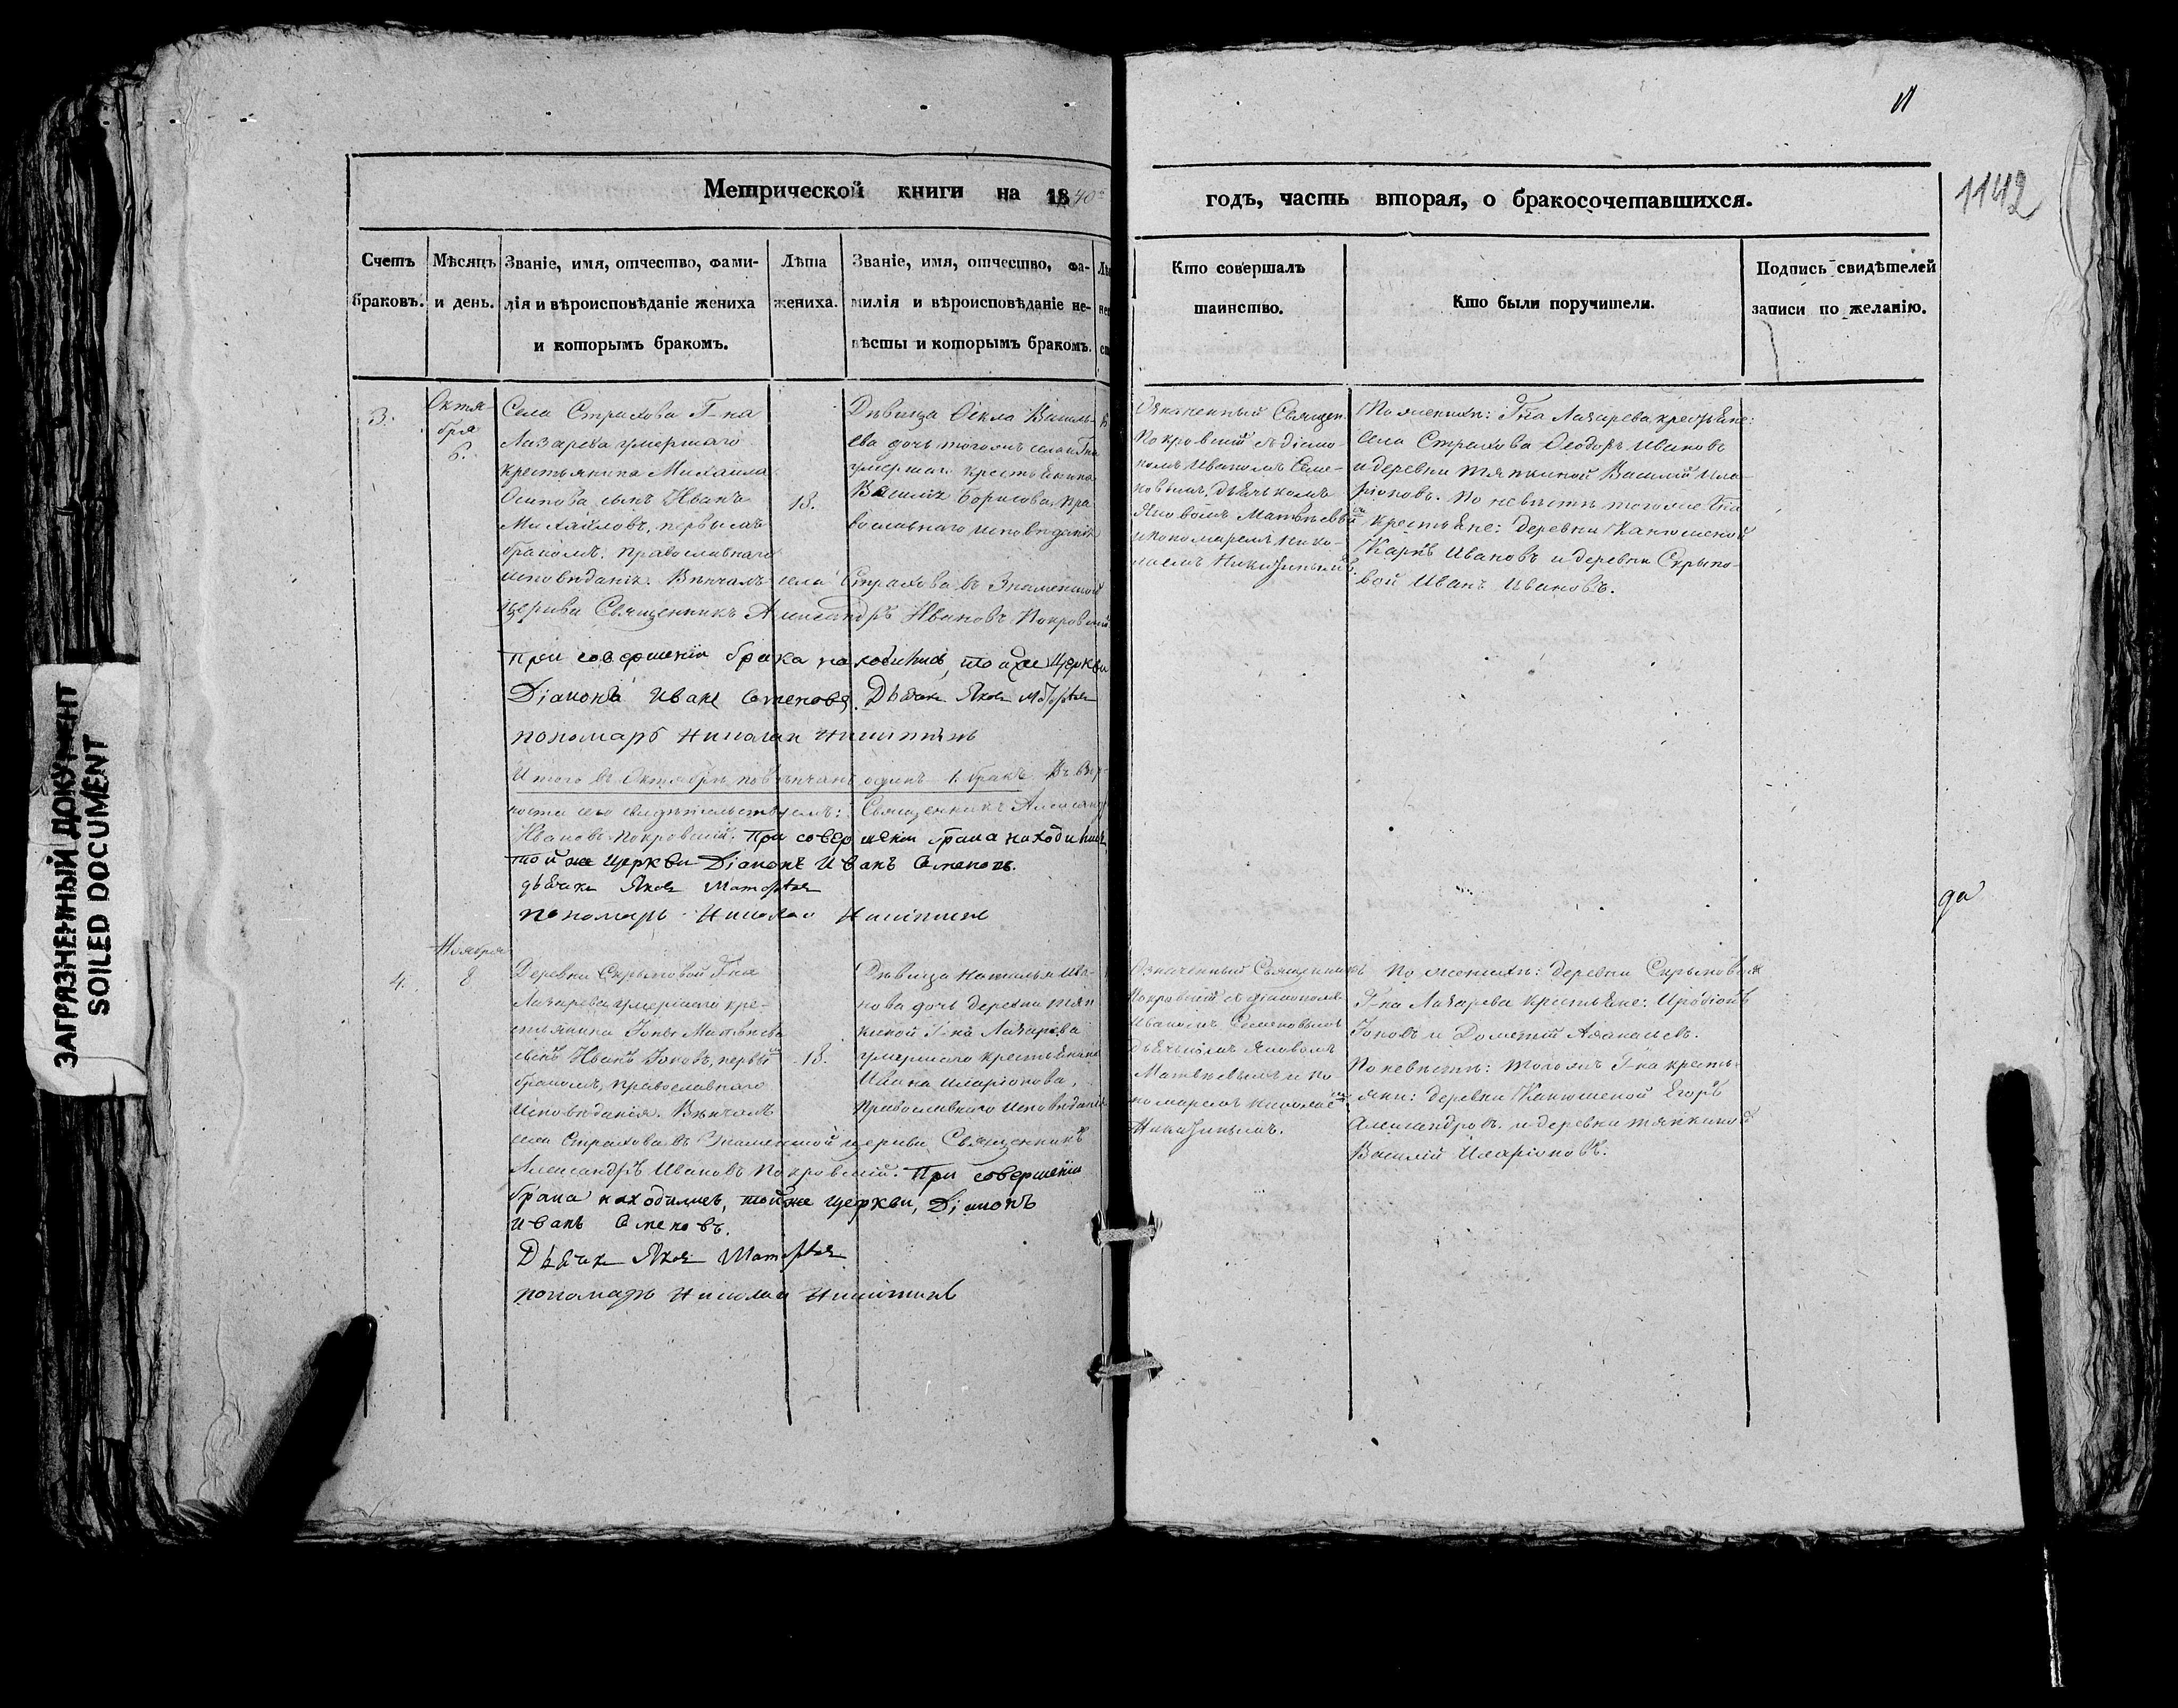 11
1142
Метрической книги на 1840й
годъ, часть вторая, о бракосочетавшихся.
Счетъ
браковъ.
Мѣсяцъ
и день.
Званіе, имя, отчество, фами-
лія и вѣроисповѣданіе жениха
и которымъ бракомъ.
Лѣта
жениха.
Званіе, имя, отчество, фа-
милія и вѣроисповѣданіе не-
вѣсты и которымъ бракомъ.
Кто совершалъ
таинство.
Кто были поручители.
Подпись свидѣтелей
записи по желанію.
3.
Октя-
бря
6.
Села Страхова Г-на
Лазарева умершаго
крестьянина Михаила
Осипова сынъ Иванъ
Михайловъ, первымъ
бракомъ, православнаго
исповѣданія. Вѣнчалъ села Страхова въ Знаменской
церкви Священникъ Александръ Ивановъ Покровскій
18.
Дѣвица Ѳекла Василь-
ева дочь тогожъ села и Г-на
умершаго крестьянина
Василія Борисова, пра-
вославнаго исповѣданія
При совершеніи брака находились той же Церкви
Діаконъ Иванъ Семеновъ. Дьячекъ Яковъ Матвѣевъ
пономарь Николай Никитинъ
Итого въ Октябрѣ повѣнчанъ одинъ 1. бракъ. Въ вѣр-
ности сего свидѣтельствуемъ: Священникъ Александръ
Ивановъ Покровскій. При совершеніи брака находились
той же Церкви Діаконъ Иванъ Семеновъ.
дьячекъ Яковъ Матвѣевъ
пономарь Николай Никитинъ
Означенный Священ.
Покровскій съ діако-
номъ Иваномъ Семе-
новымъ, дьячькомъ
Яковомъ Матвѣевымъ
и пономаремъ Нико-
лаемъ Никитинымъ.
По женихѣ: Г-на Лазарева крестьяне:
села Страхова Ѳеодоръ Ивановъ
и деревни Тяпкиной Василій Ила-
ріоновъ. По невѣстѣ тогоже Г-на
крестьяне: деревни
Карпъ Ивановъ и деревни Скрыпо-
вой Иванъ Ивановъ.
да
4.
Ноября
8
Деревни Скрыповой Г-на
Лазарева умершаго кре-
стьянина Іоны Матвѣева
сынъ Иванъ Іоновъ, первымъ
бракомъ, православнаго
исповѣданія. Вѣнчалъ
села Страхова въ Знаменской церкви Священникъ
Александръ Ивановъ Покровскій. При совершеніи
брака находились, той же церкви, Діаконъ
Иванъ Семеновъ.
Дьячекъ Яковъ Матвѣевъ
пономарь Николай Никитинъ
18.
Дѣвица Наталья Ива-
нова дочь деревни Тяп-
киной Г-на Лазарева
умершаго крестьянина
Ивана Иларіонова,
православнаго исповѣданія
Означенный Священникъ
Покровскій съ діакономъ
Иваномъ Семеновымъ
дьячькомъ Яковомъ
Матвѣевымъ и по-
номаремъ Николаемъ
Никитинымъ.
По женихѣ: деревни Скрыповой
Г-на Лазарева крестьяне: Иродіонъ
Іоновъ и Дометій Аѳанасьевъ.
По невѣстѣ: тогожъ Г-на кресть-
яни: деревни Егоръ
Александровъ и деревни Тяпкиной
Василій Иларіоновъ.
ЗАГРЯЗНЕННЫЙ ДОКУМЕНТ
SOILED DOCUMENT